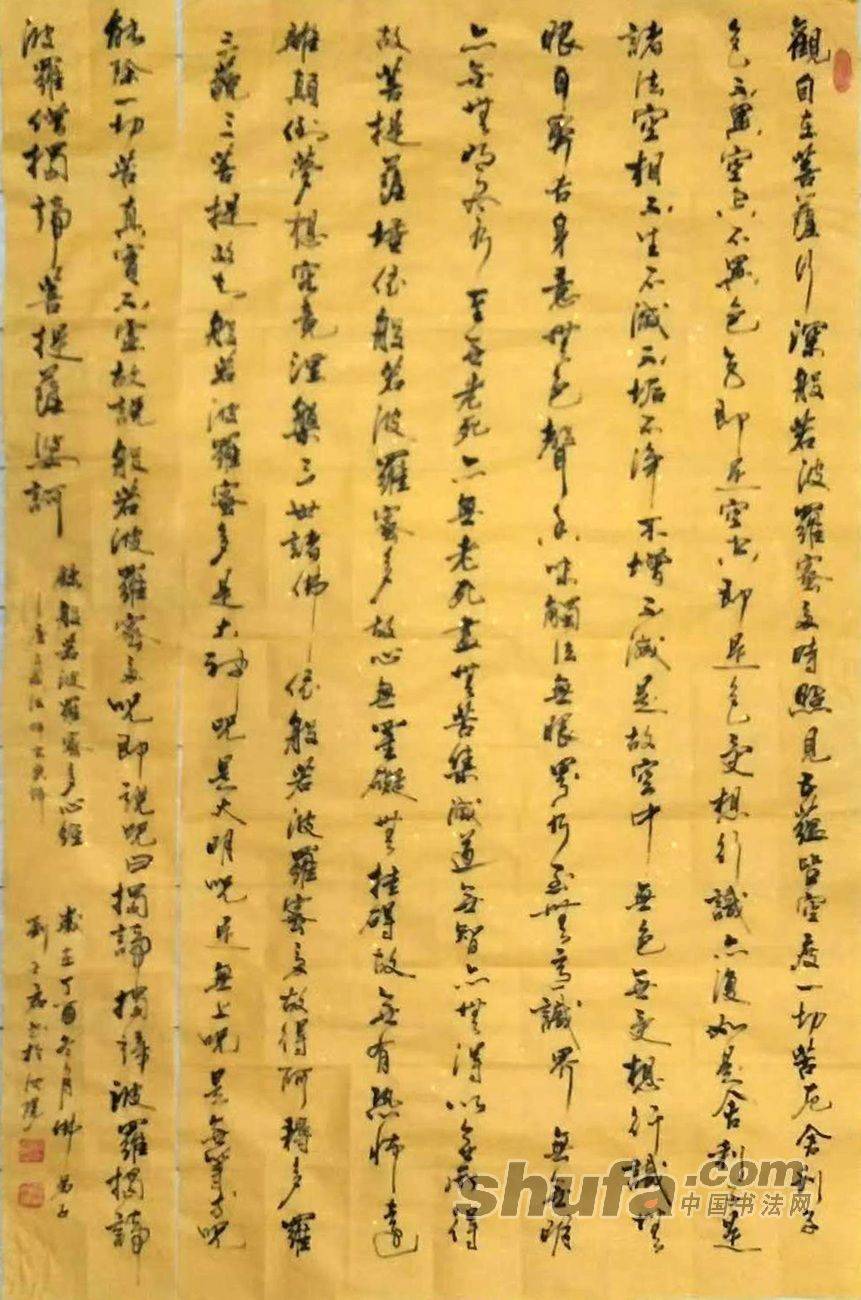 觀自在菩薩行深般若波羅蜜多時照見五蘊皆空度一切苦厄舍利子
色不異空空不異色色即是空空即是色受想行識亦復如是舍利子是
諸法空相不生不滅不垢不淨不增不減是故空中無色無受想行識無
眼耳鼻舌身意無色聲香味觸法無眼界乃至無意識界無無明
亦無無明盡乃至無老死亦無老死盡無苦集滅道無智亦無得以無所得
故菩提薩埵依般若波羅蜜多故心無罣礙無挂碍故無有恐怖遠
離顛倒夢想究竟涅槃三世諸佛依般若波羅蜜多故得阿耨多羅
三藐三菩提故知般若波羅蜜多是大神咒是大明咒是無上咒是無等等咒
能除一切苦真實不虛故說般若波羅蜜多咒即說咒曰揭諦揭諦波羅揭諦
波羅僧揭諦菩提薩婆訶
般若波羅蜜多心經
歲在丁酉冬月佛弟子
shufa.com
中国书法网